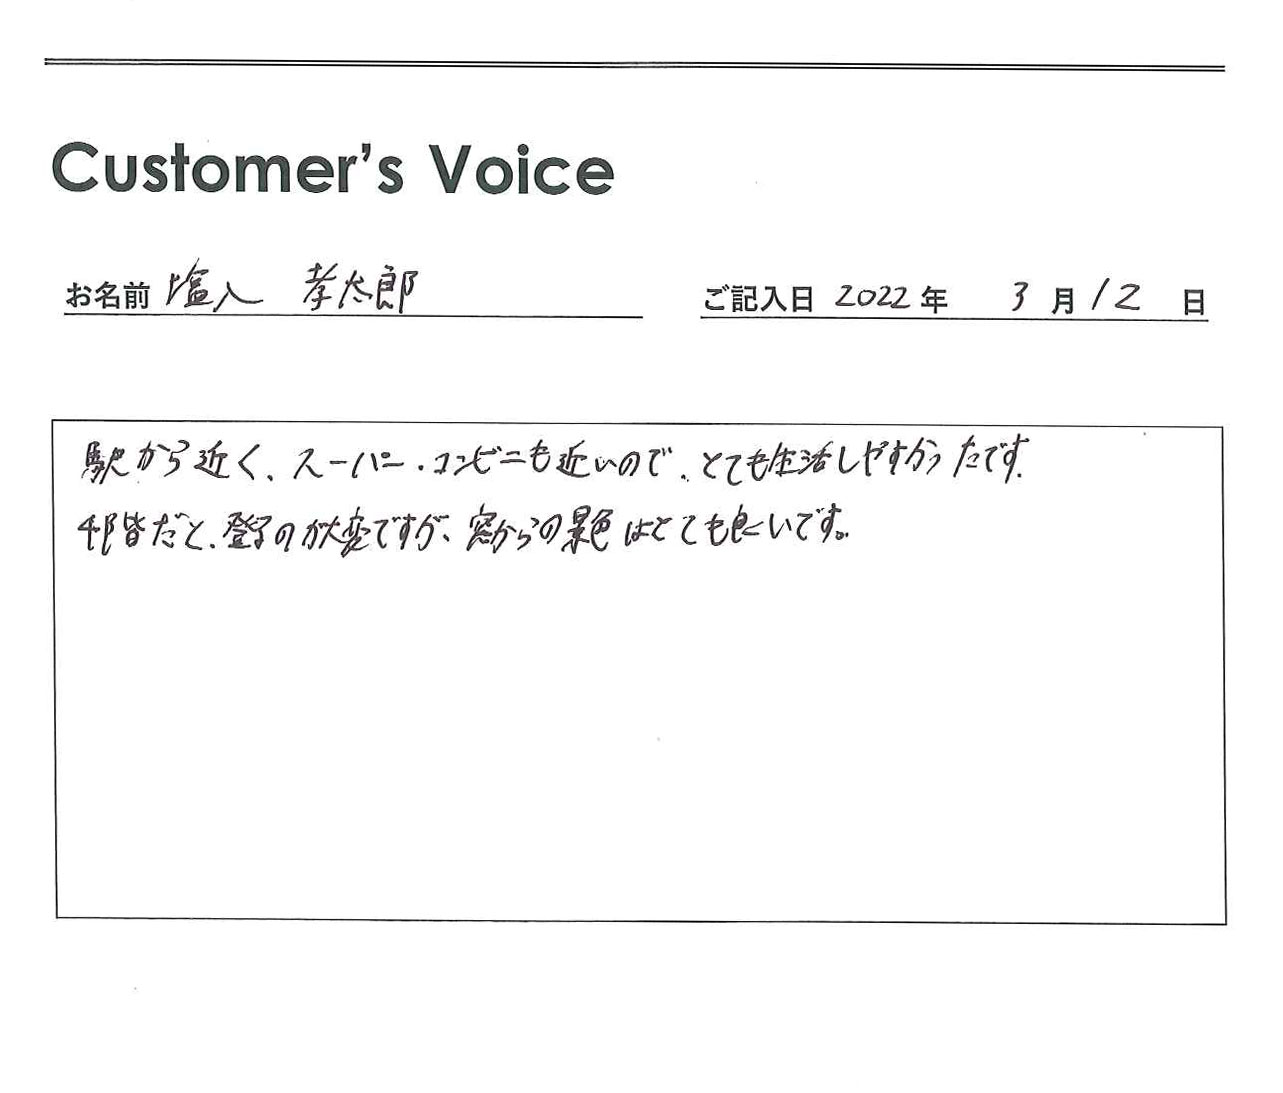 Customer's Voice
お名前 塩入 孝太郎
ご記入日 2022年 3月12日
駅から近く、スーパー・コンビニも近いので、とても生活しやすかったです。
4階だと、登るのが大変ですが、窓からの景色はとても良いです。